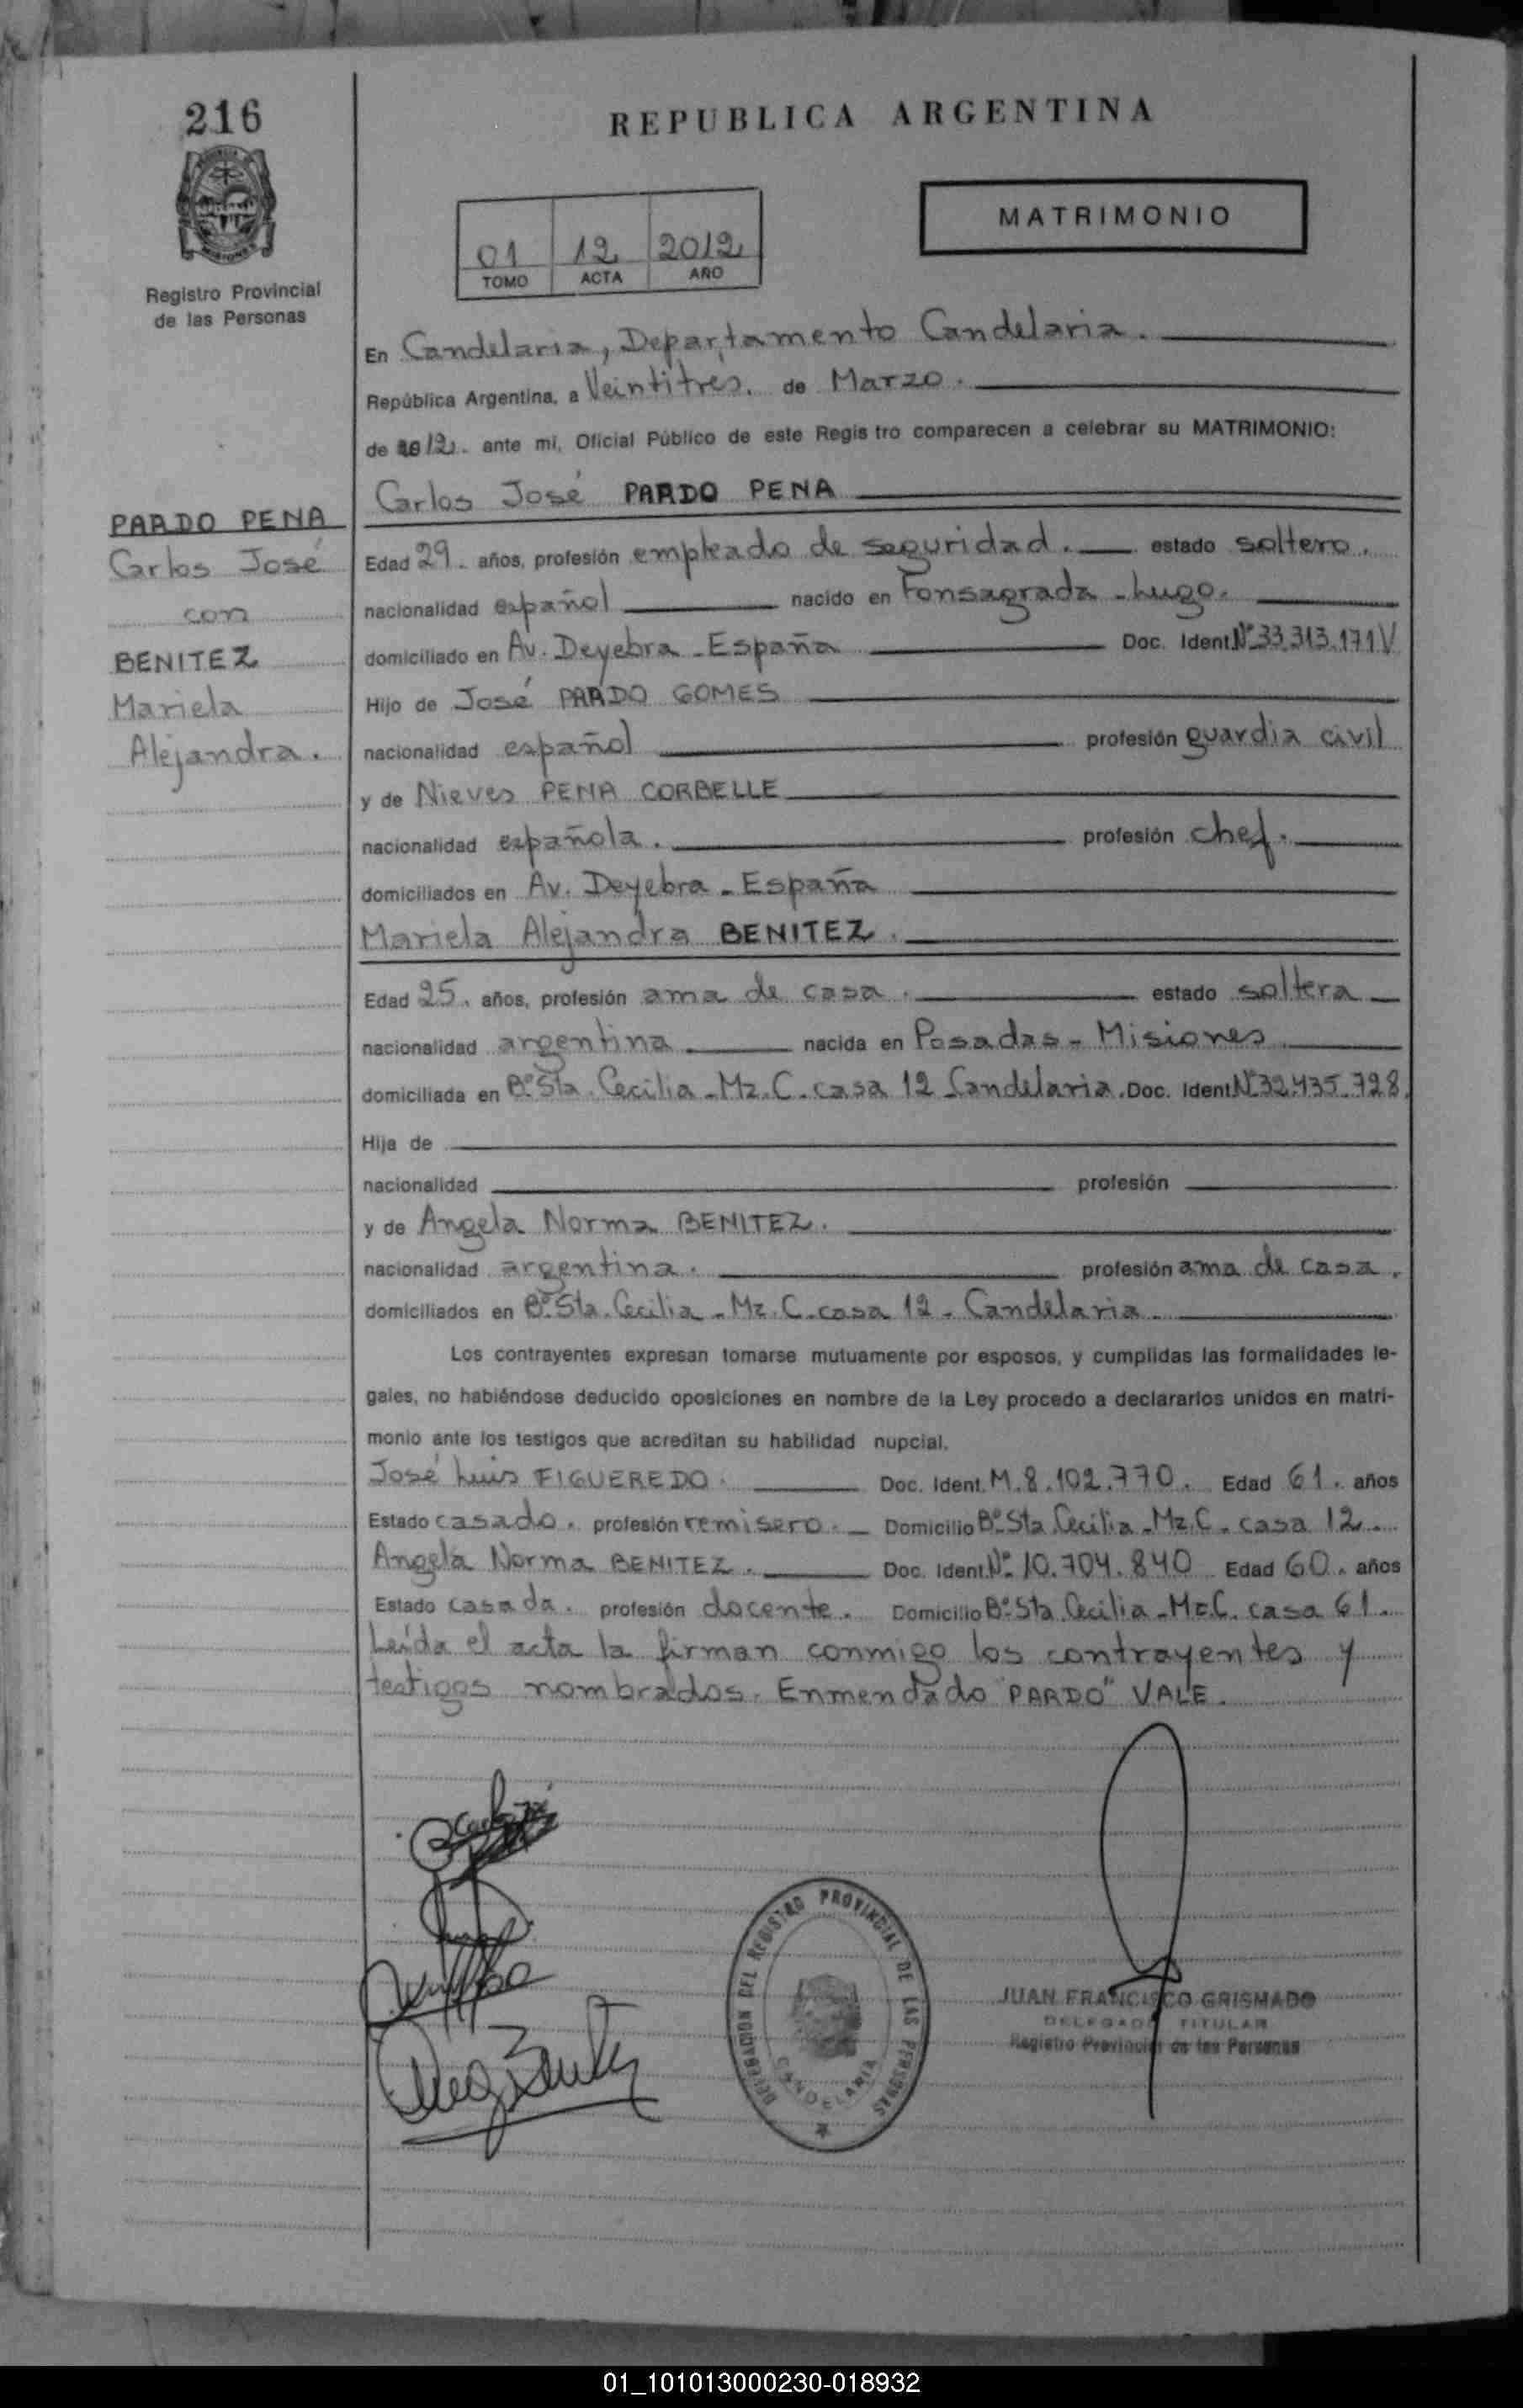 216
REPUBLICA ARGENTINA
MATRIMONIO
01 12 2012
TOMO ACTA AÑO
Registro Provincial
de las Personas
En Candelaria, Departamento Candelaria.
República Argentina, a Veintitres. de Marzo.
de 2012. ante mi, Oficial Público de este Regis tro comparecen a celebrar su MATRIMONIO:
Carlos José PARDO PENA
PARDO PENA
Carlos José
con
BENITEZ
Mariela
Alejandra.
Edad 29. años, profesión empleado de seguridad. estado soltero.
nacionalidad español nacido en Fonsagrada - Lugo.
domiciliado en Av. Deyebra - España Doc. Ident. Nº 33.313.171V
Hijo de José PARDO GOMES
nacionalidad español profesión guardia civil
y de Nieves PENA CORBELLE
nacionalidad española. profesión chef.
domiciliados en Av. Deyebra - España
Mariela Alejandra BENITEZ.
Edad 25. años, profesión ama de casa. estado soltera
nacionalidad argentina nacida en Posadas - Misiones
domiciliada en Bº Sta. Cecilia - Mz. C. casa 12 Candelaria. Doc. Ident. Nº 32.435.728.
Hija de
nacionalidad profesión
y de Angela Norma BENITEZ.
nacionalidad argentina. profesión ama de casa.
domiciliados en Bº Sta. Cecilia - Mz. C. casa 12 - Candelaria.
Los contrayentes expresan tomarse mutuamente por esposos, y cumplidas las formalidades le-
gales, no habiéndose deducido oposiciones en nombre de la Ley procedo a declararlos unidos en matri-
monio ante los testigos que acreditan su habilidad nupcial.
José Luis FIGUEREDO. Doc. Ident. M. 8.102.770. Edad 61. años
Estado casado. profesión remisero. Domicilio Bº Sta. Cecilia - Mz. C. casa 12.
Angela Norma BENITEZ. Doc. Ident. Nº 10.704.840 Edad 60. años
Estado casada. profesión docente. Domicilio Bº Sta. Cecilia - Mz C. casa 61.
Leída el acta la firman conmigo los contrayentes y
testigos nombrados. Enmendado "PARDO" VALE.
DELEGACION DEL REGISTRO PROVINCIAL DE LAS PERSONAS
CANDELARIA
JUAN FRANCISCO GRISMADO
DELEGADO TITULAR
Registro Provincial de las Personas
01_101013000230-018932